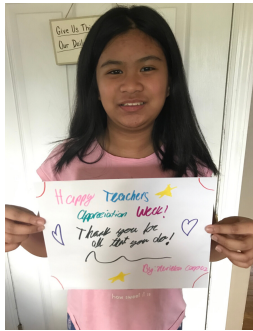 Give Us Th
Our Dail
Happy Teachers
Appreciation Week!
Thank you for
all that you do!
By: